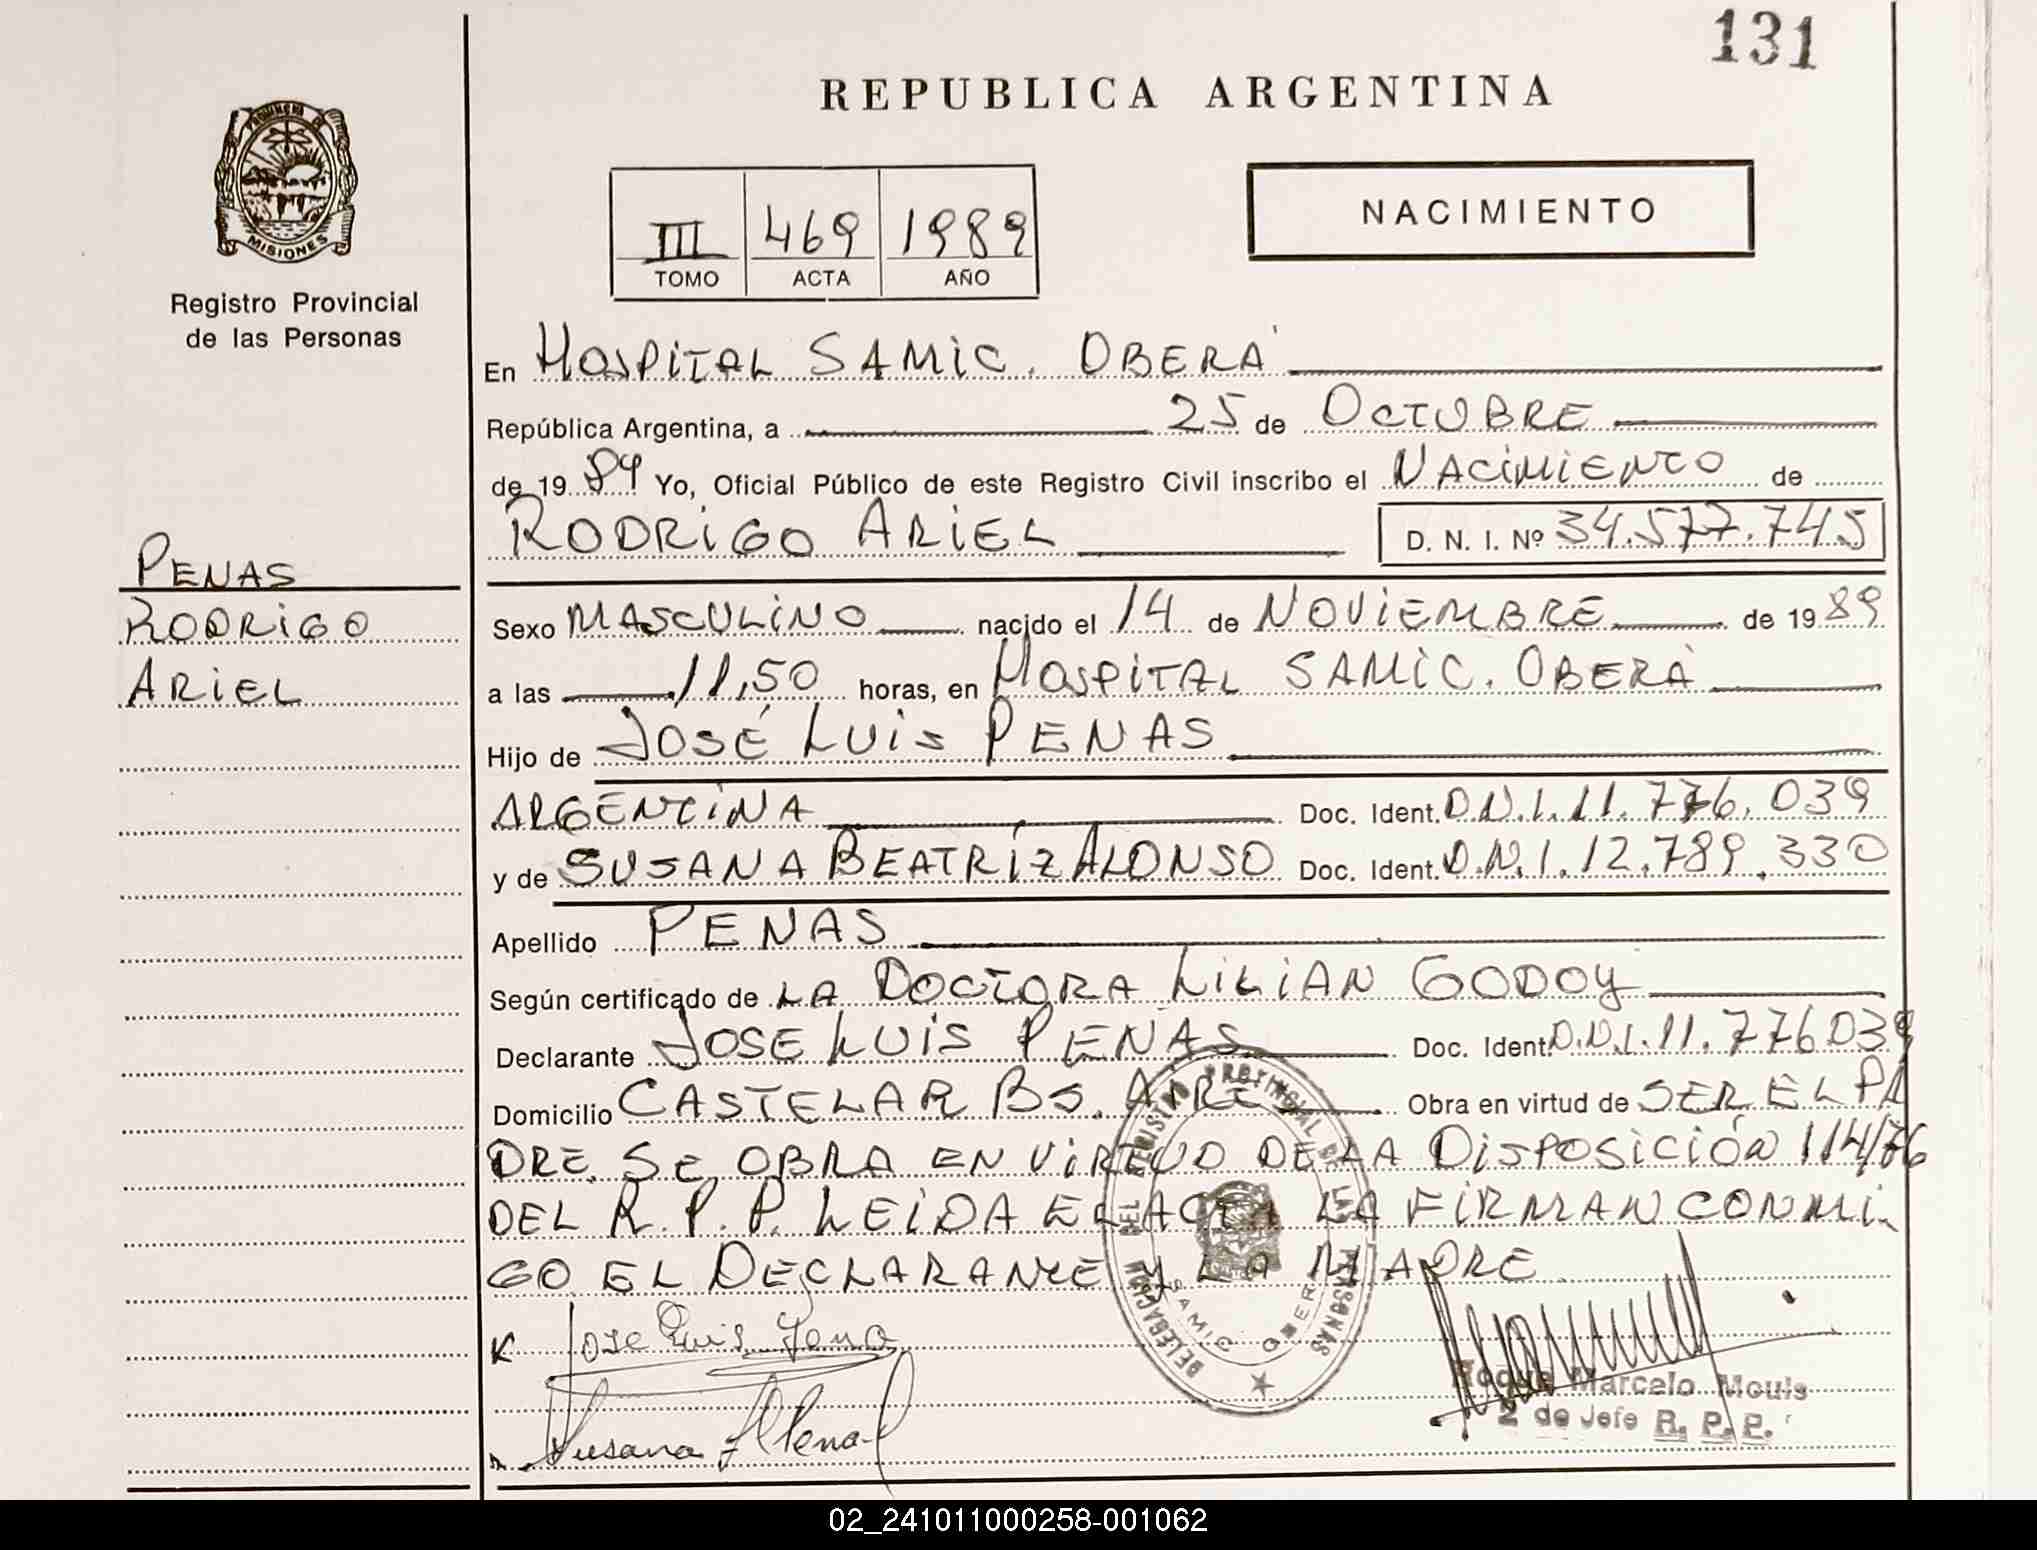 131
REPUBLICA ARGENTINA
PROVINCIA DE
MISIONES
Registro Provincial
de las Personas
NACIMIENTO
III 469 1989
TOMO ACTA AÑO
En HOSPITAL SAMIC. OBERÁ
República Argentina, a 25 de OCTUBRE
de 1989 Yo, Oficial Público de este Registro Civil inscribo el NACIMIENTO de
RODRIGO ARIEL D. N. I. Nº 34.577.745
PENAS
RODRIGO
ARIEL
Sexo MASCULINO nacido el 14 de NOVIEMBRE de 1989
a las 11,50 horas, en HOSPITAL SAMIC. OBERÁ
Hijo de JOSÉ LUIS PENAS
ARGENTINA Doc. Ident. D.N.I. 11.776.039
y de SUSANA BEATRÍZ ALONSO Doc. Ident. D.N.I. 12.789.330
Apellido PENAS
Según certificado de LA DOCTORA LILIAN GODOY
Declarante JOSE LUIS PENAS Doc. Ident. D.N.I. 11.776039
Domicilio CASTELAR BS. AIRES Obra en virtud de SER EL PA
DRE. SE OBRA EN VIRTUD DE LA DISPOSICIÓN 114/76
DEL R.P.P. LEIDA EL ACTA LA FIRMAN CONMI
GO EL DECLARANTE Y LA MADRE
Jose Luis Penas
Susana
DELEGACION DEL REGISTRO PROVINCIAL DE LAS PERSONAS
SAMIC OBERA
Roque Marcelo Mouis
2 de Jefe R. P. P.
02_241011000258-001062